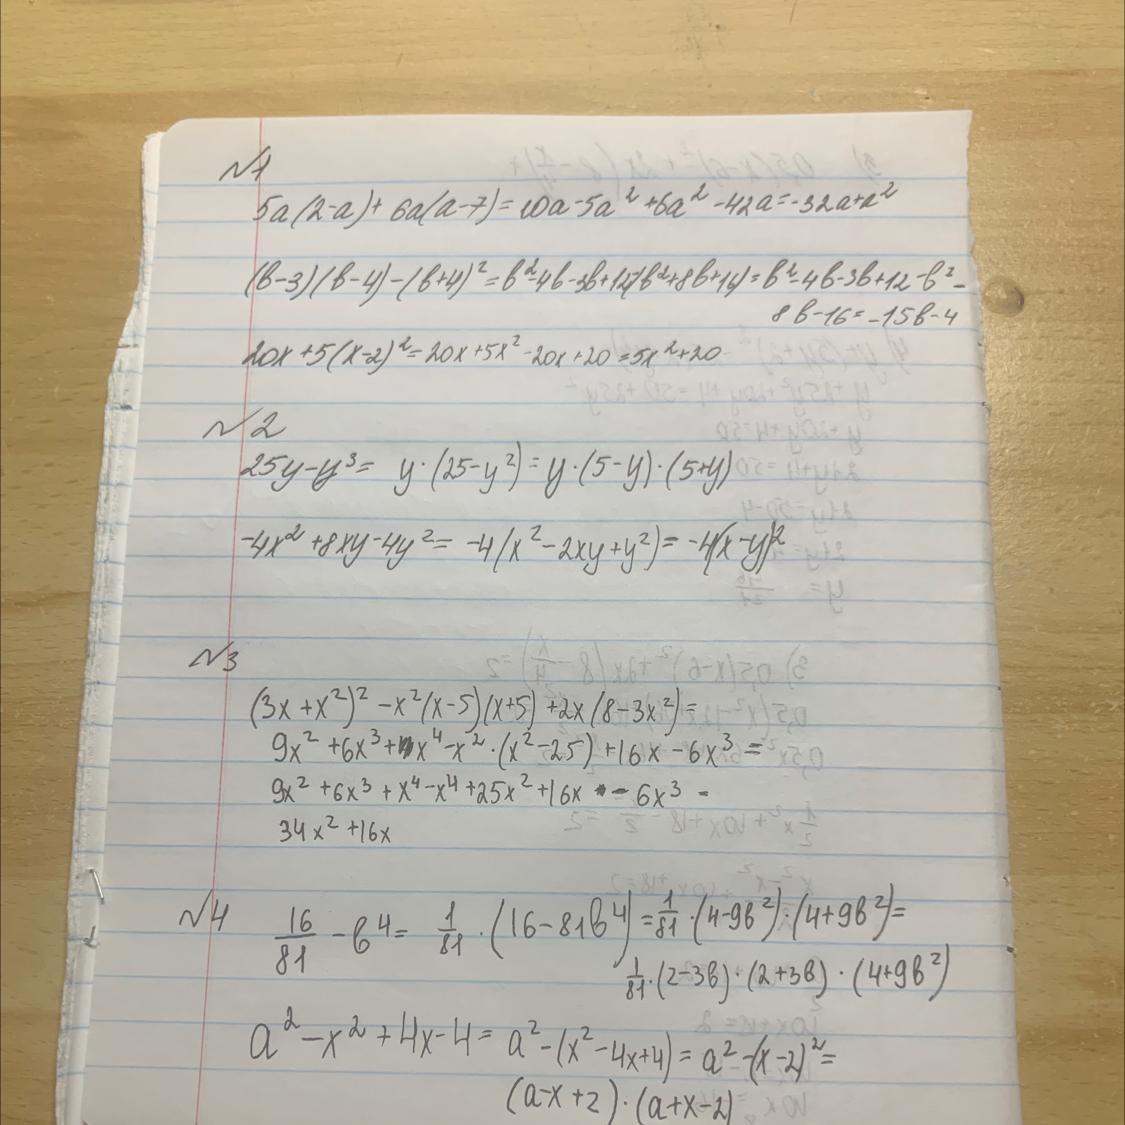 №1
5a(2-a)+ 6a(a-7)= 10a-5a²+6a²-42a=-32a+a²
(b-3)(b-4)-(b+4)²=b²-4b-3b+12-(b²+8b+16)=b²-4b-3b+12-b²-
8b-16=-15b-4
20x+5(x-2)²=20x+5x²-20x+20=5x²+20
№2
25y-y³= y·(25-y²)=y·(5-y)·(5+y)
-4x²+8xy-4y²= -4(x²-2xy+y²)=-4(x-y)²
№3
(3x+x²)²-x²(x-5)(x+5)+2x(8-3x²)=
9x²+6x³+x⁴-x²·(x²-25)+16x-6x³=
9x²+6x³+x⁴-x⁴+25x²+16x-6x³-
34x²+16x
№4
16/81-b⁴= 1/81·(16-81b⁴)=1/81·(4-9b²)·(4+9b²)=
1/81·(2-3b)·(2+3b)·(4+9b²)
a²-x²+4x-4= a²-(x²-4x+4)=a²-(x-2)²=
(a-x+2)·(a+x-2)